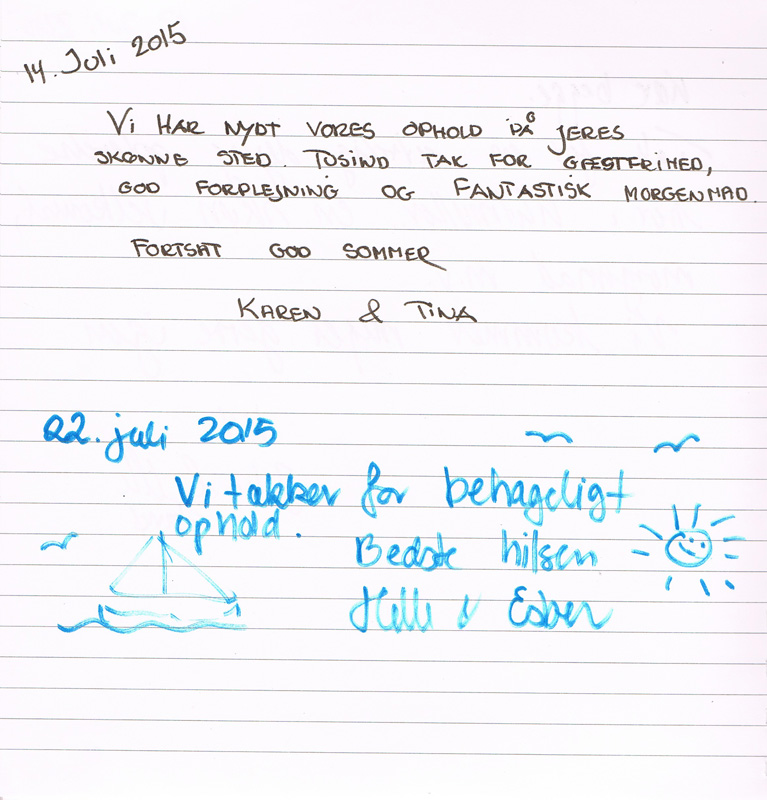 14. Juli 2015
Vi HAR NYDT VORES OPHOLD PÅ JERES
SKØNNE STED. TUSIND TAK FOR GÆSTFRIHED,
GOD FORPLEJNING OG FANTASTISK MORGENMAD.
FORTSAT GOD SOMMER
KAREN & TINA
22. juli 2015
Vi takker for behageligt
ophold.
Bedste hilsen
Helle & Esben